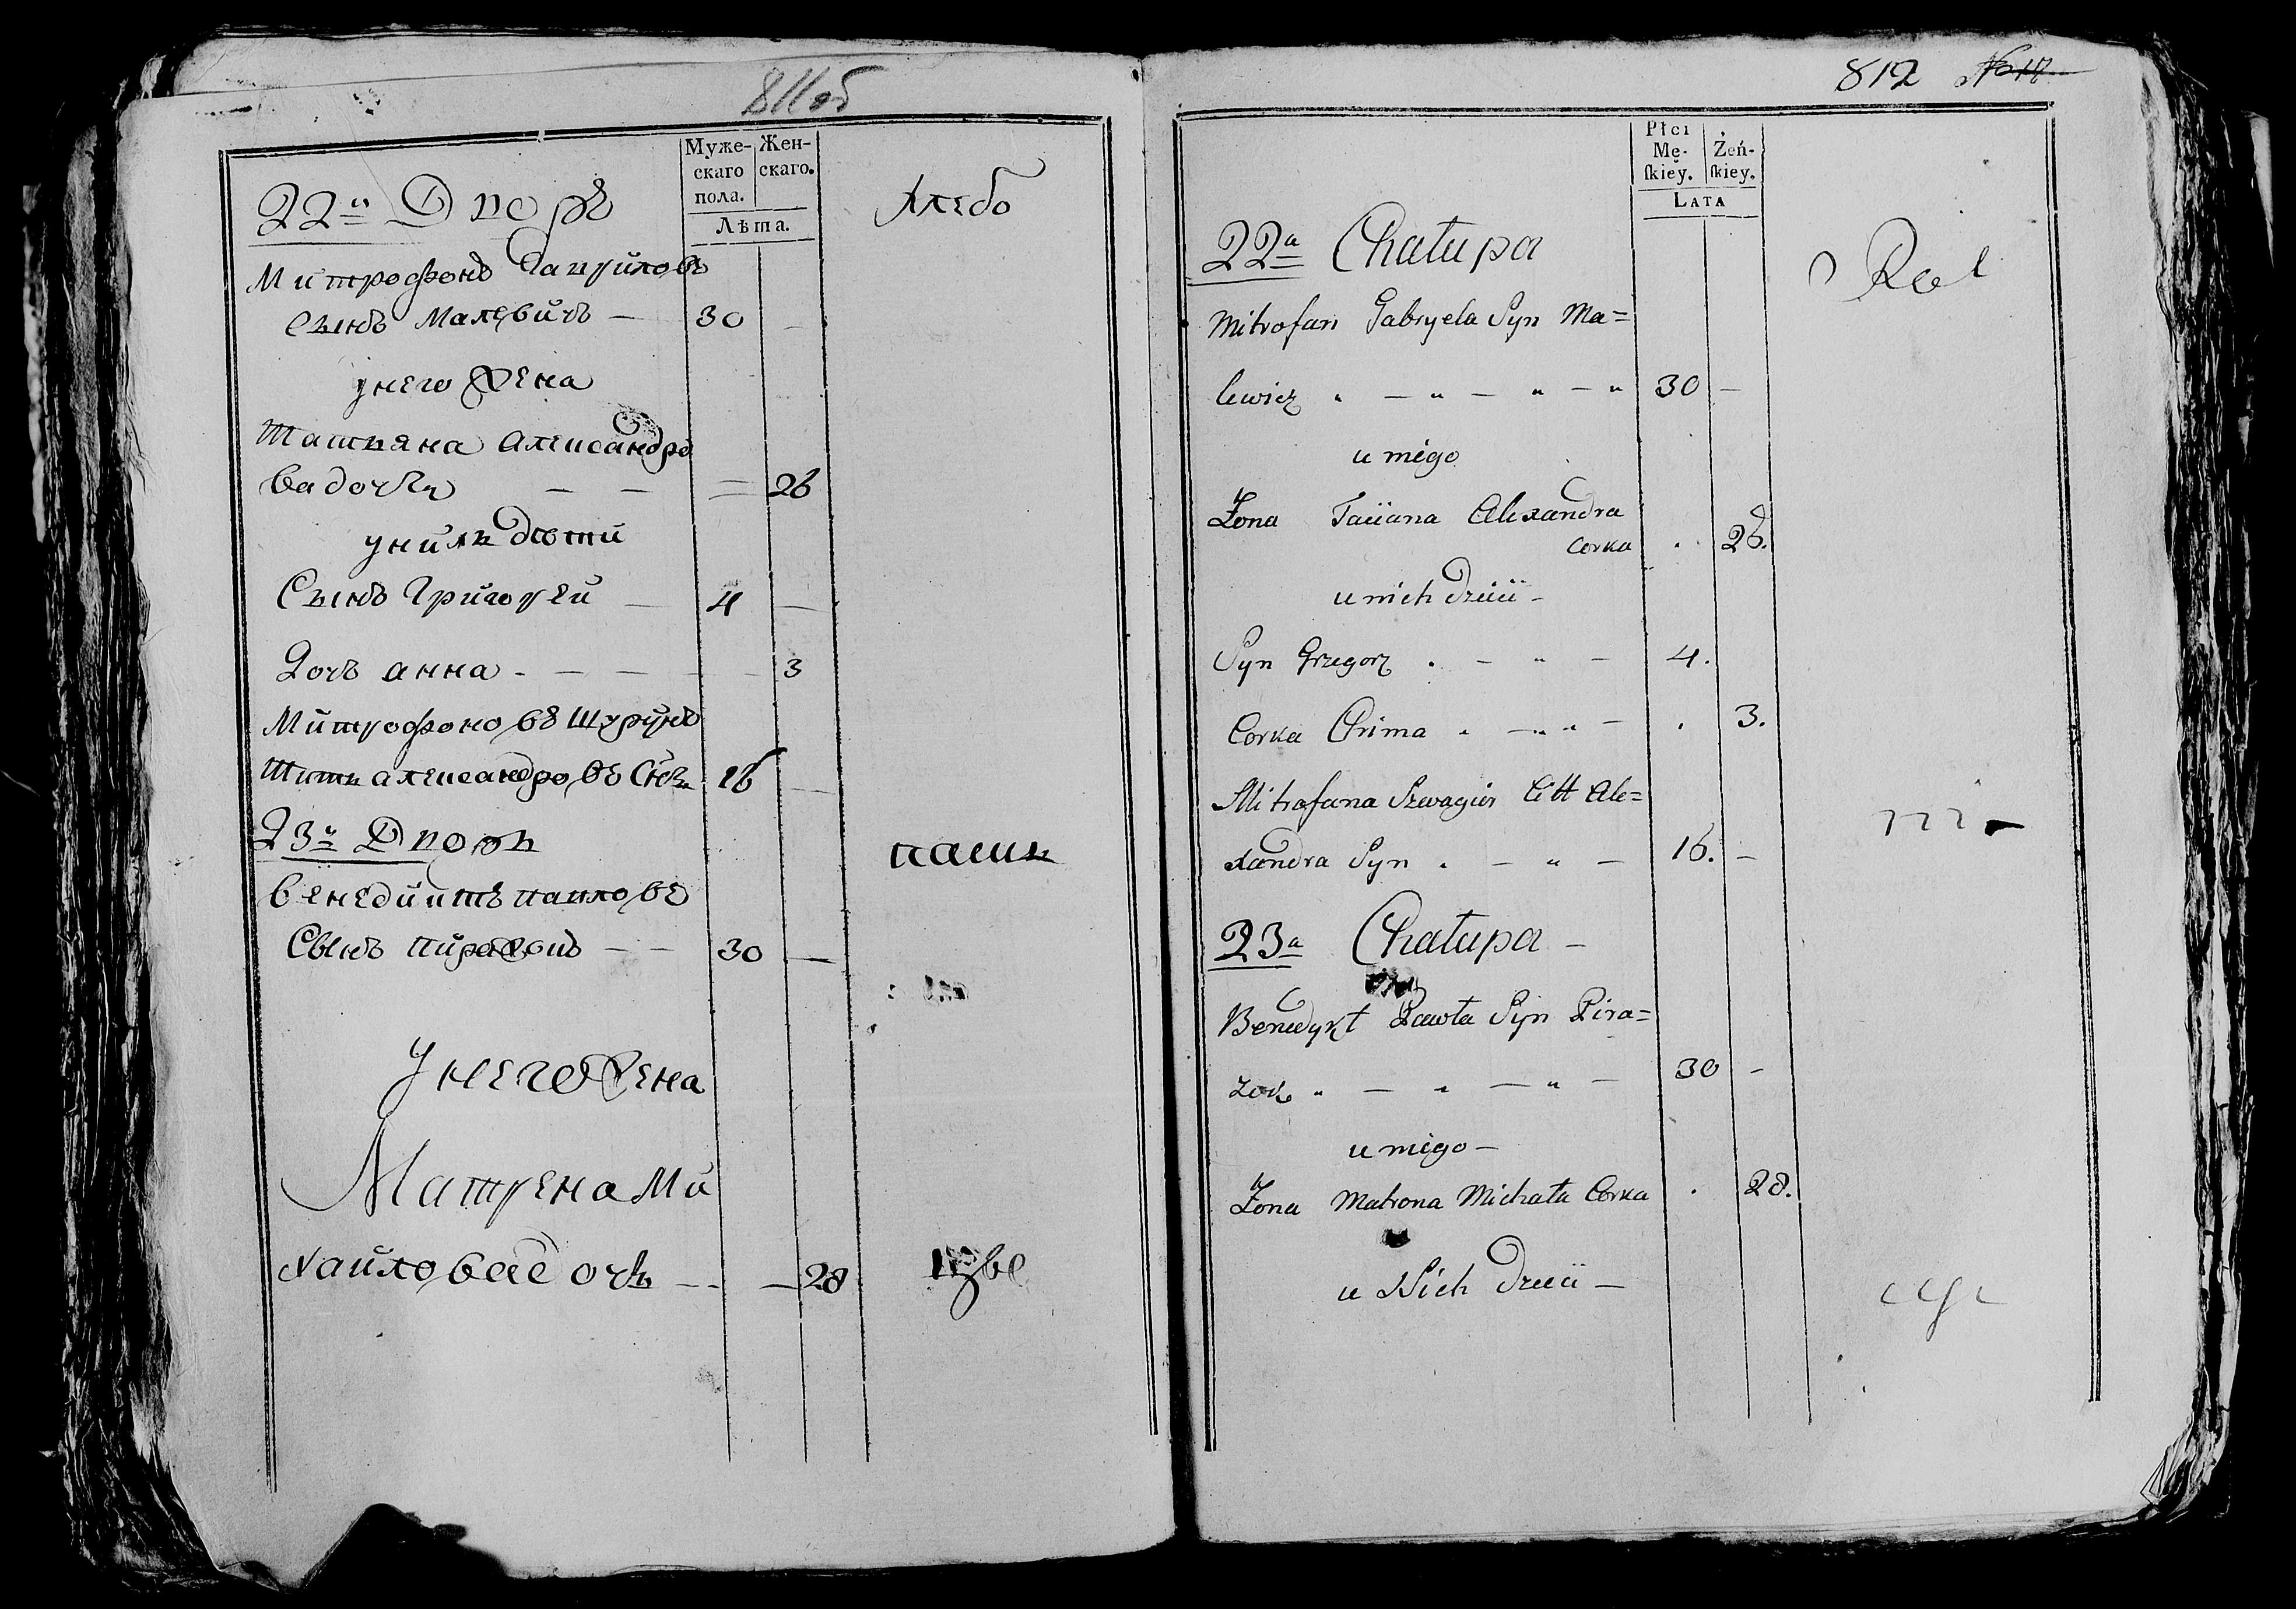 811об
Муже-
скаго
пола.
Жен-
скаго.
Лѣта.
22й Дворъ
Хлебо
Митрофонъ Гавриловъ
Сынъ Малевичъ — 30 —
у него Жена
Татьяна Александро
ва дочь — — = 26
у нихъ дѣти
Сынъ Григорей — 4 —
Дочь анна - — — — — 3
Митрофоновъ Шуринъ
Титъ александровъ Снъ 16 —
23й Дворъ
пашъ
Венедиктъ павловъ
Сынъ пиражокъ — — 30 —
У него Жена
Матрена Ми
хайлова дочь — - — 28
812 №
Płci
Mę-
ſkiey.
Żeń-
ſkiey.
LATA
22a Chałupa
Rol
Mitrofan Gabryela Syn Ma=
lewicz " — " — " — " 30 —
u niego
Żona Taciana Alexandra
Corka . 26.
u nich dzieci —
Syn Grzegorz . — " — 4.
Corka Anna " — " " — . 3.
Mitrofana Szwagier Titt Ale=
xandra Syn . — " — 16. —
ni
23a Chałupa —
Benedykt Pawła Syn Pira=
zok " — " — " — 30 -
u niego —
Żona Matrona Michała Corka . 28.
u Nich dzieci —